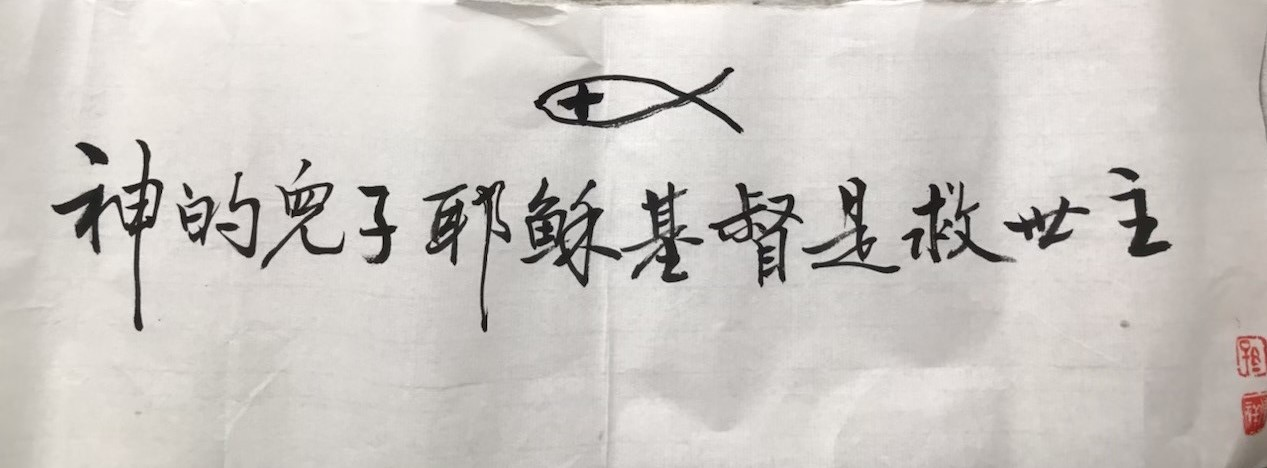 神的兒子耶穌基督是救世主